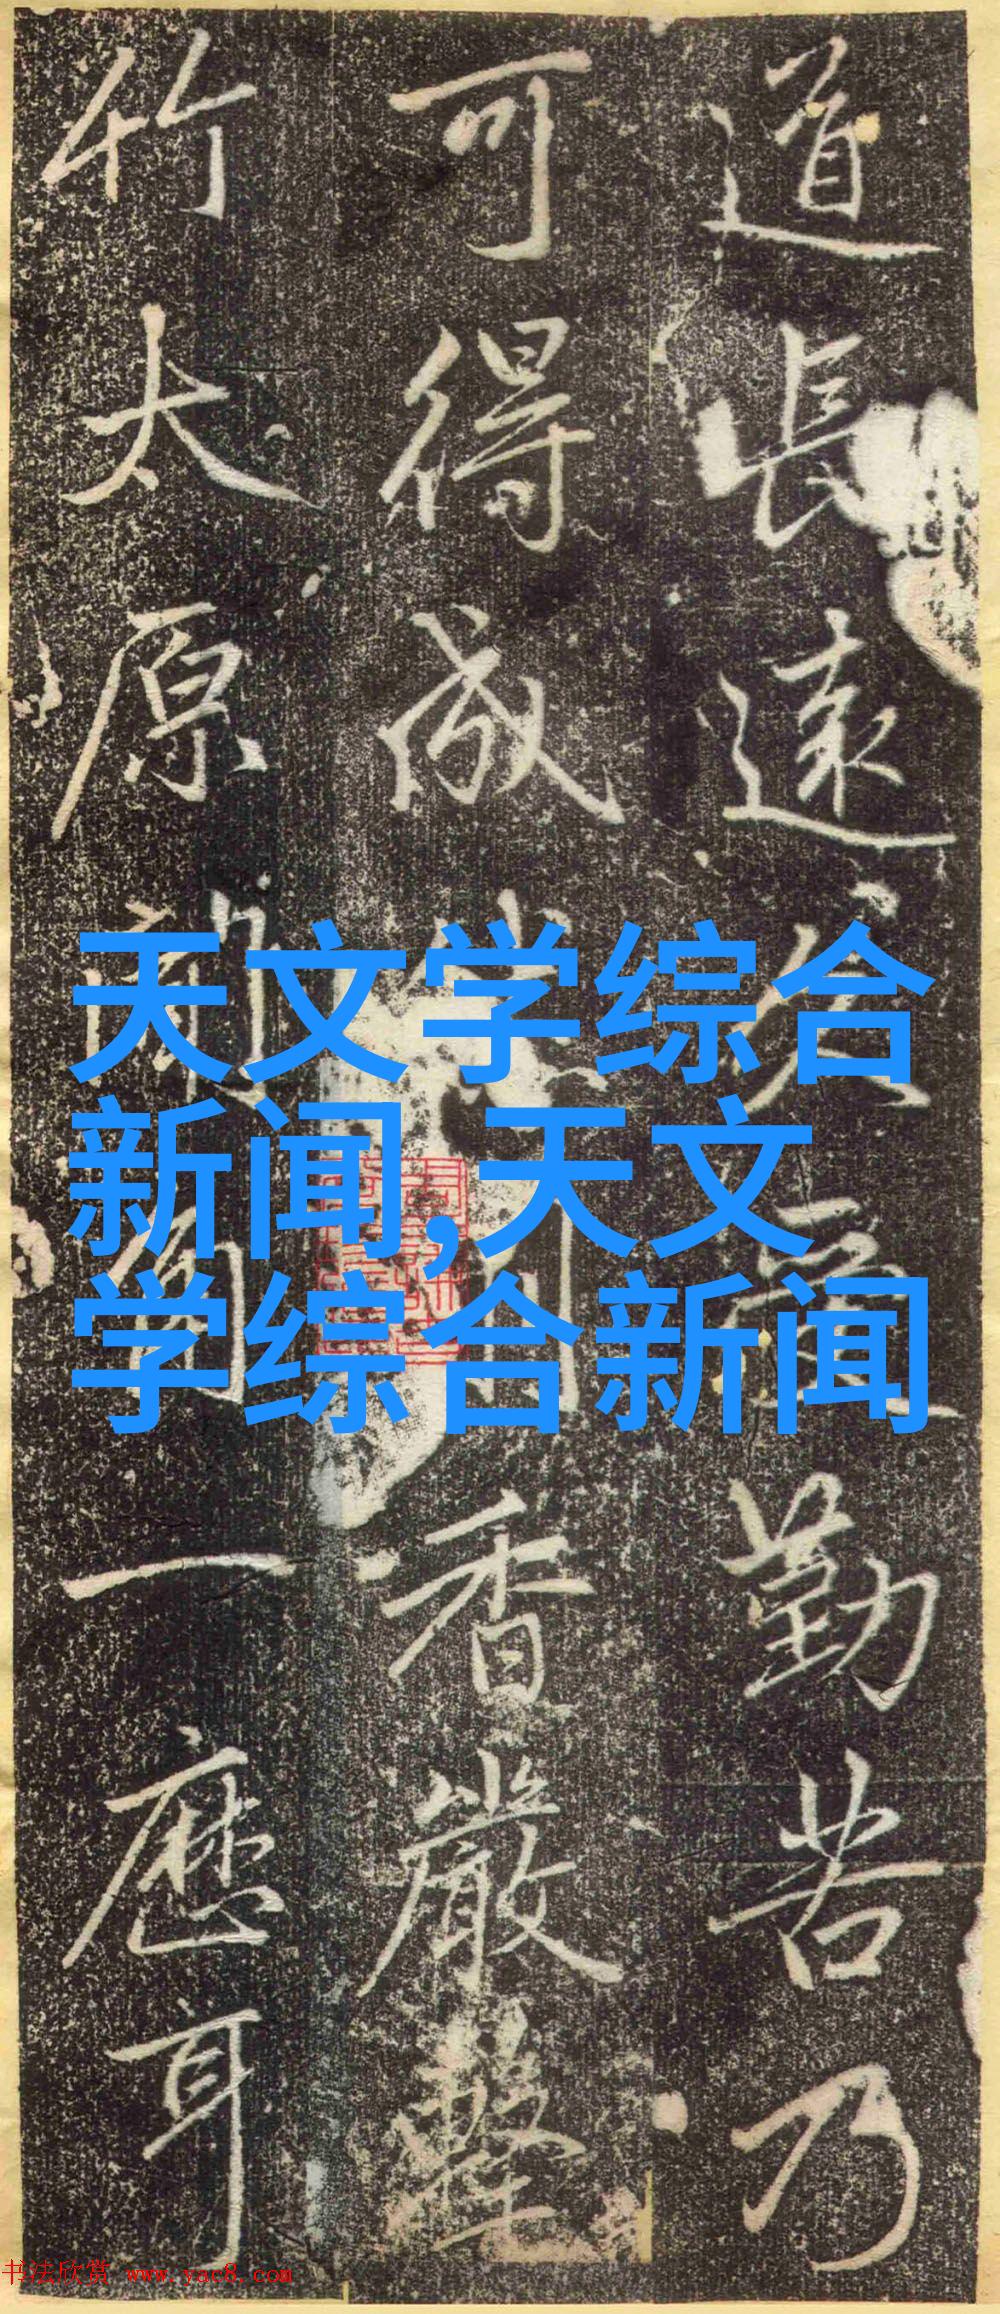 道長遠久須勤苦乃
可得成就 香嚴擊
竹太原聞角一應耳
天文学综合
新闻,天文
学综合新闻
书法欣赏 www.yac8.com